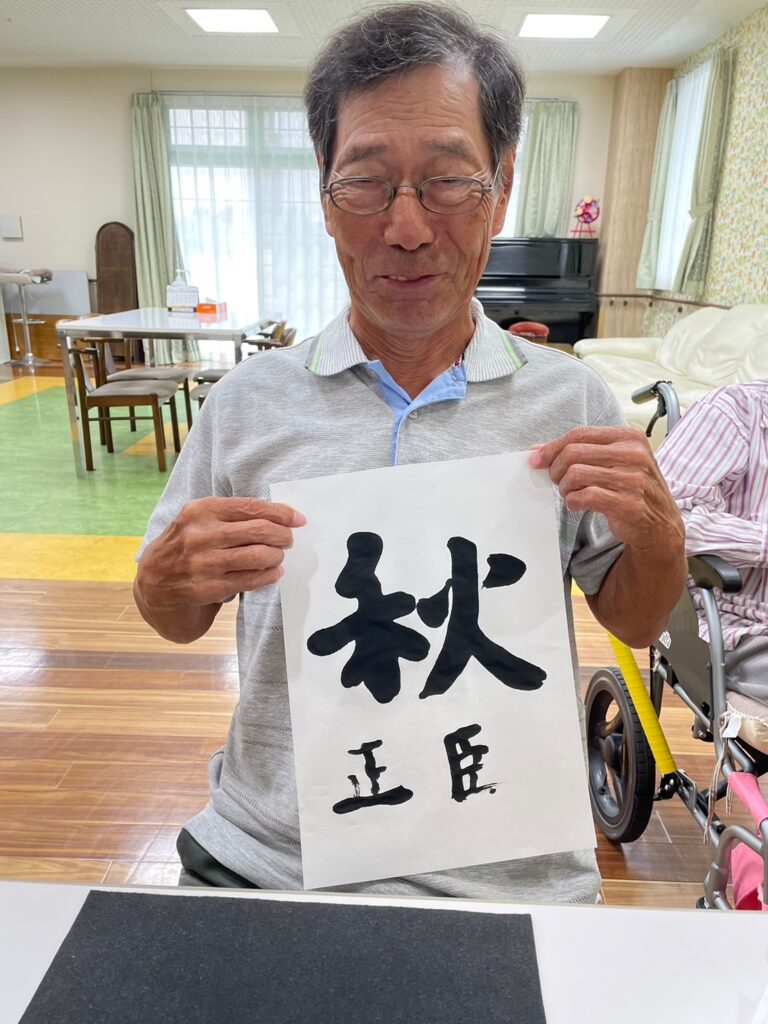 秋
正臣